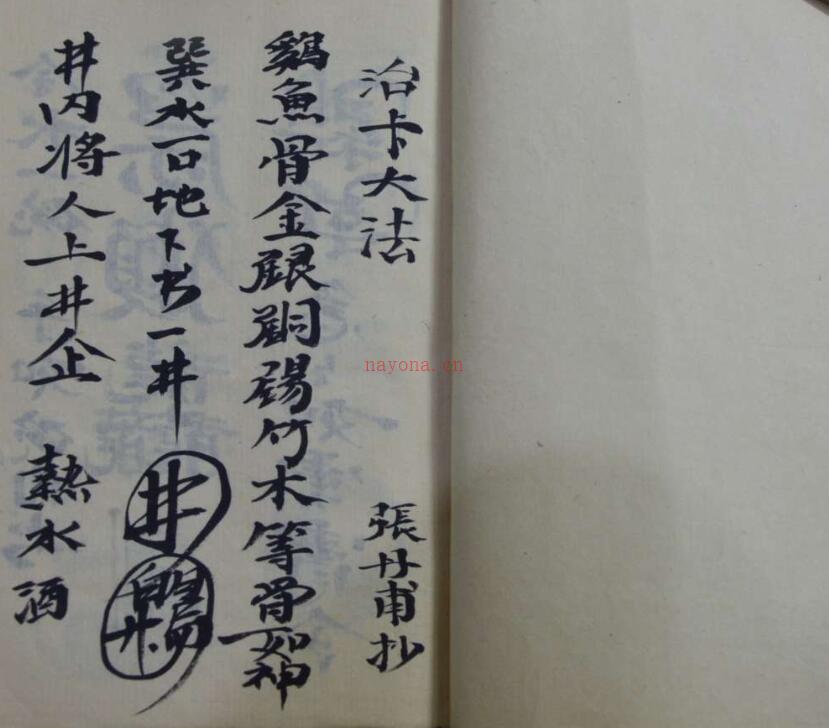 治卡大法 張丹甫抄
鷄魚骨金銀銅錫竹木等骨如神
巽水一口地下书一井 井
井内将人上井企 熱水酒
nayona.cn